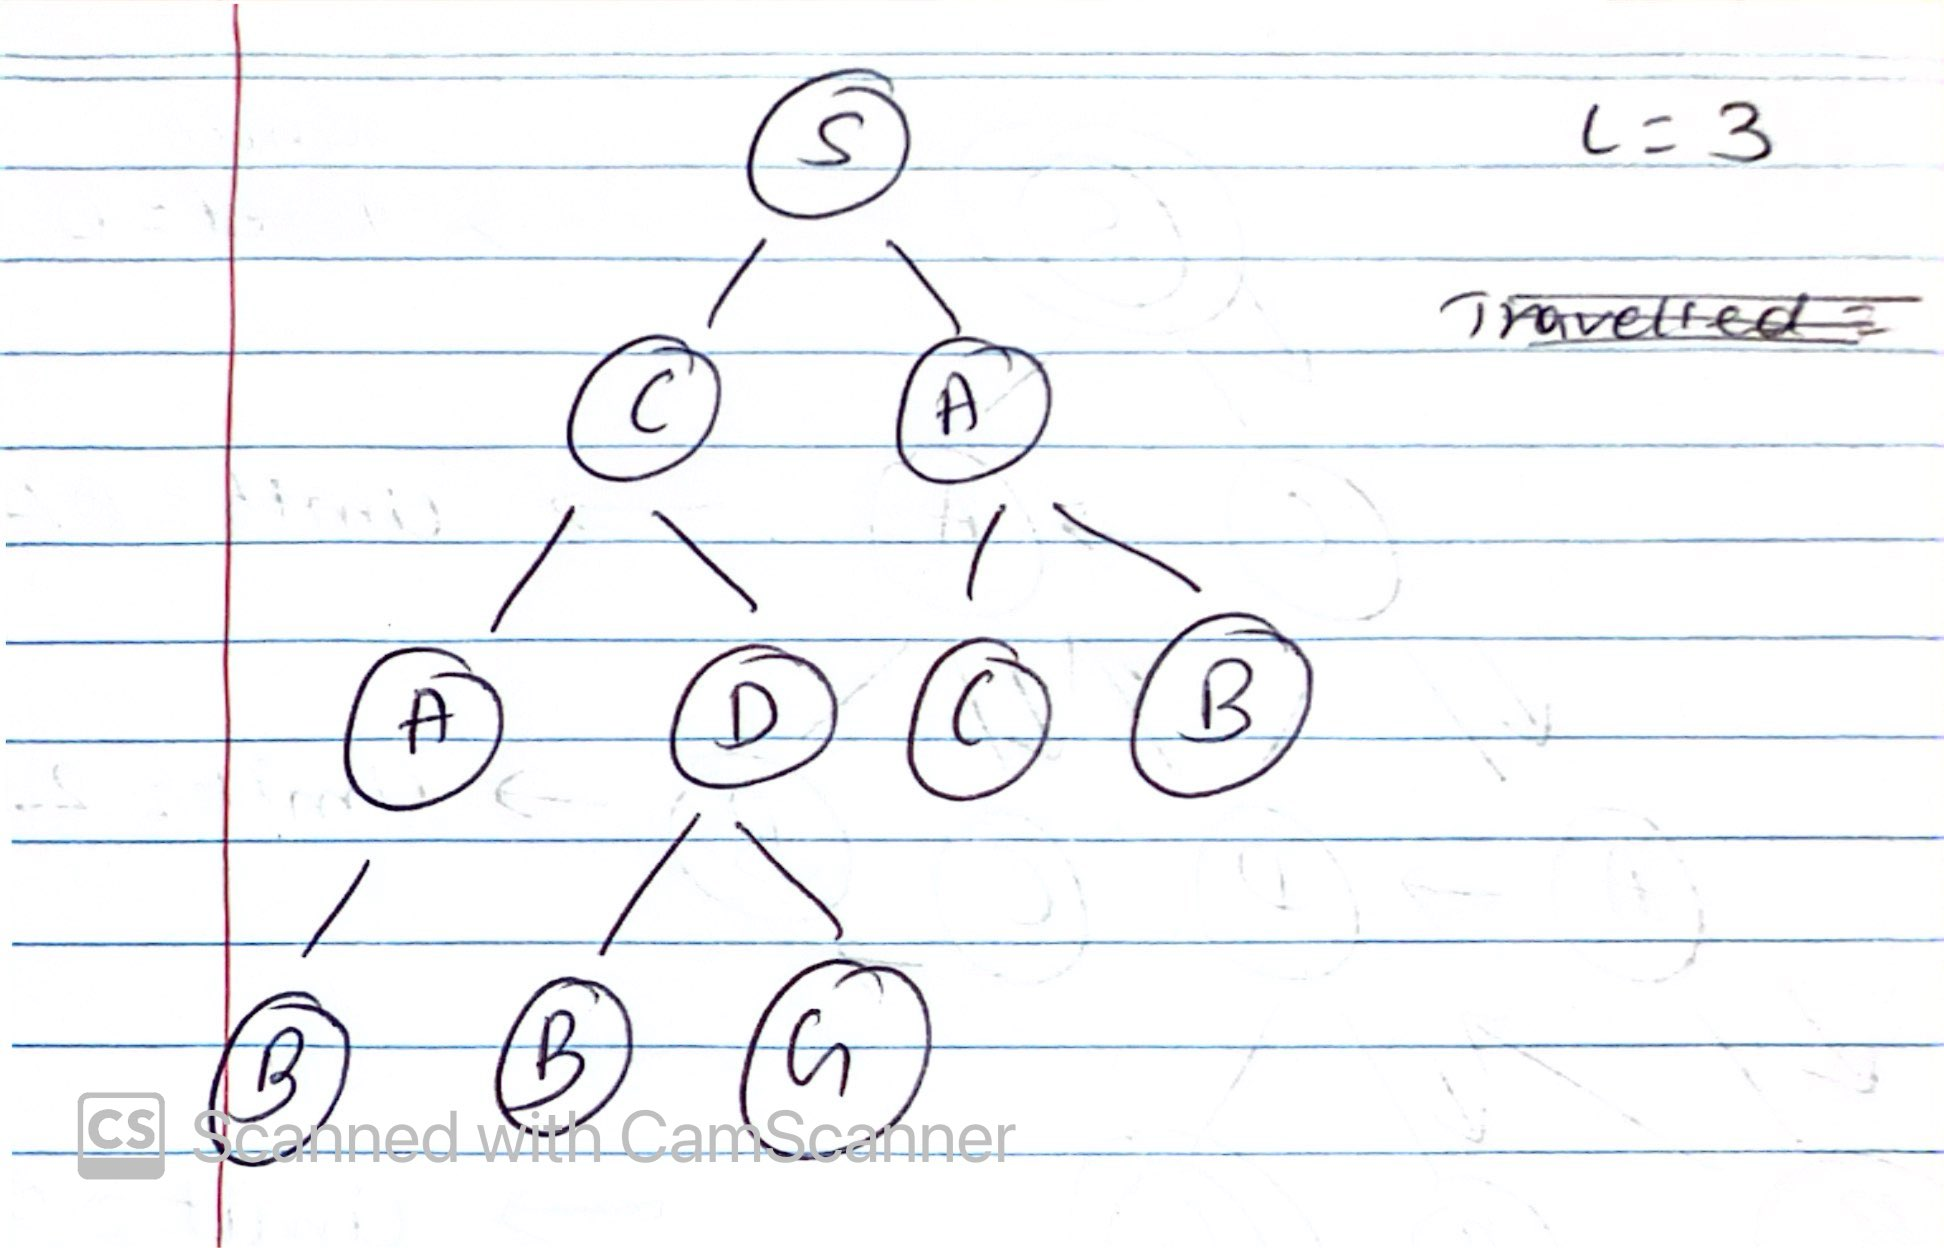 S
L = 3
Travelled =
C A
A D C B
B B G
CS Scanned with CamScanner